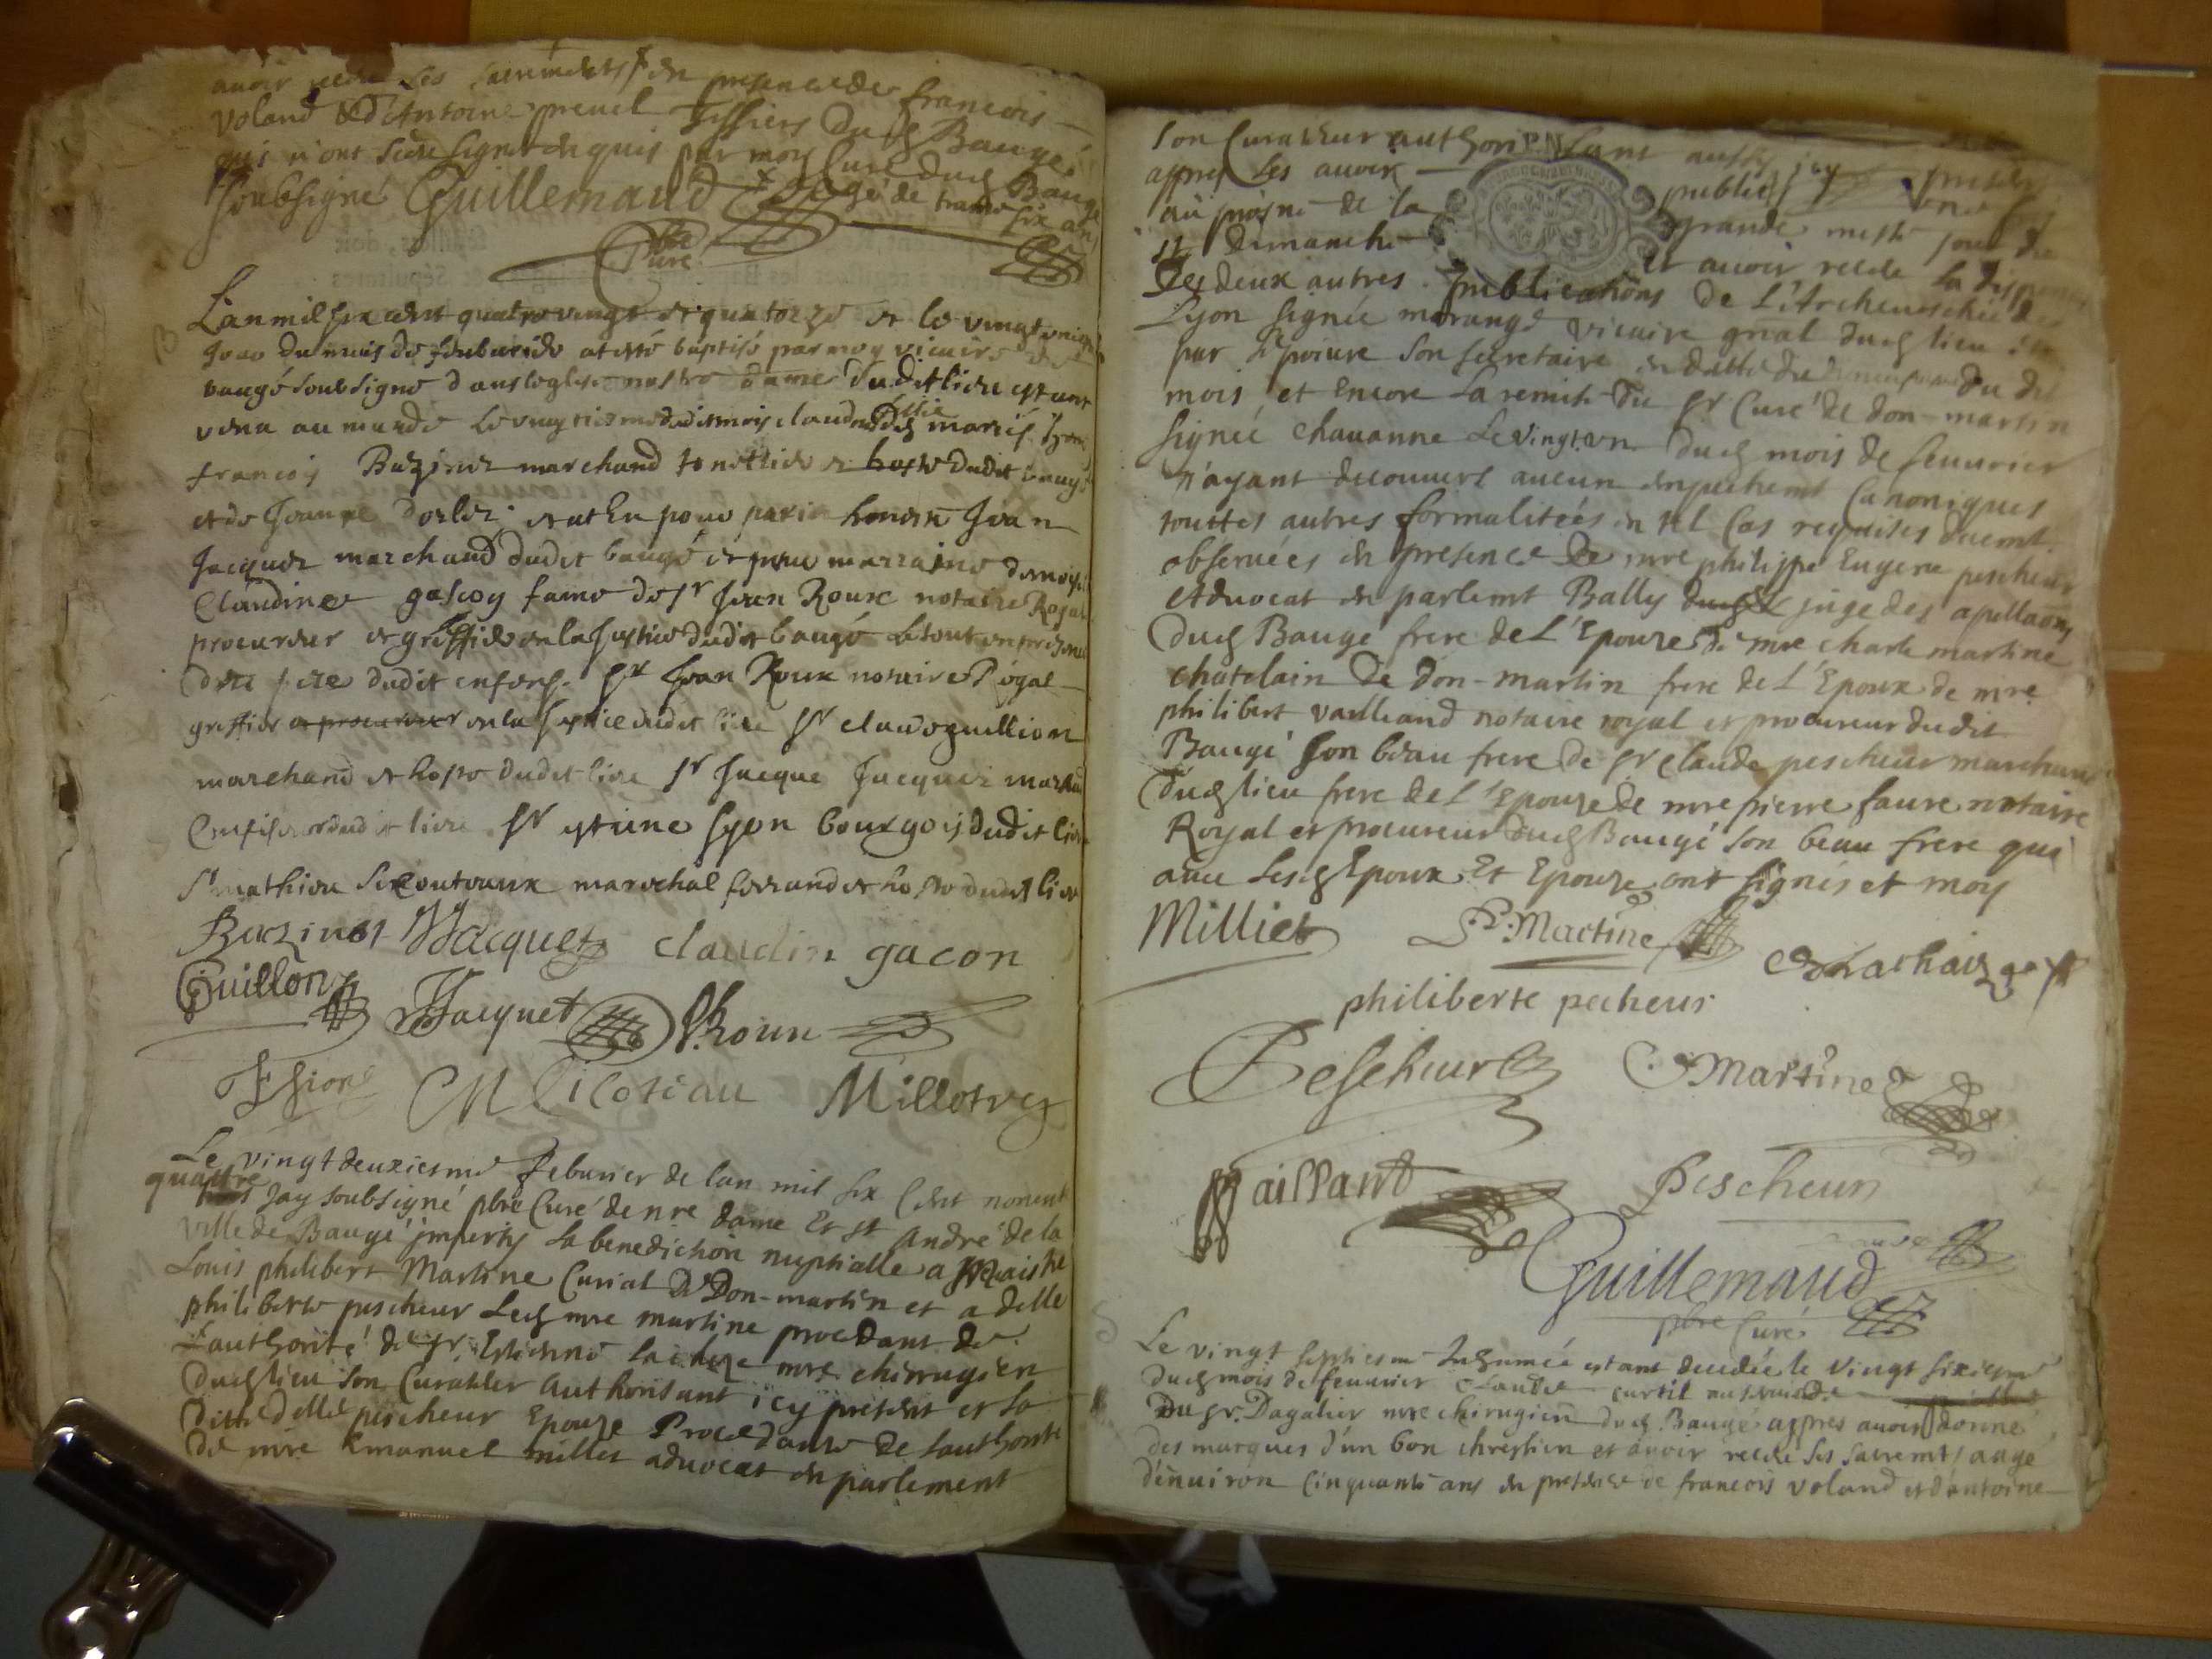 avoir receu les sacrements en presence de francois
voland & d'Antoine preuel Tissiers dud Baugé
qui n'ont sceu signer enquis par moy Curé dud Baugé
soubsigné Guillemaud x aagé de trante six ans
pbre
Curé
L'an mil six cent quatre vingt et quatorze et le vingt
Jour du mois de feubvrier at esté baptisé par moy vicaire de
baugé soubsigné dans leglise nostre dame dudit lieu estant
venu au monde le vingtiesme dudit mois claudine fillie mariés
francois Buzinet marchand et hoste dudit baugé
et de Jeanne et at Eu pour parin honeste Jean
Jacquet marchand dudit baugé et pour marraine
Claudine gascoy fame de sr Jean Roux notaire Royal
procureur et greffier en la Justice dudit baugé le tout en presence
du pere dudit enfens. sr Jean Roux notaire Royal
greffier et procureur en la Justice dudit lieu sr claude guillion
marchand et hoste dudit lieu sr Jacque Jacquet marchand
dudit lieu sr estiene syon bourgois dudit lieu
sr mathieu marechal ferrand et hoste dudit lieu
Buzinet Jacquet claudin gacon
Guillon Jacquet Roux
E Sion Millotvey
Le vingt deuxiesme feburier de lan mil six Cent nonente
quattre Jay soubsigné pbre Curé de nre dame Et st André de la
ville de Baugé imparty la benediction nuptialle a Maistre
Louis philibert Martine Curial de Don-martin et a delle
philiberte pescheur Led mre martine procedant de
L'authorité de sr Estienne mre chirrugien
dud lieu son Curateur authorisant icy present et la
ditte delle pescheur Epouze Procedante de lauthorité
de mre Emanuel millet advocat en parlement
son Curateur authorisant aussy icy present
appres les avoir publiés une fois
au prosne de la grande messe jour de
st dimanche et avoir receu la dispence
des deux autres publications de L'Archeveschée de
Lyon signée morange vicaire gnal dud lieu et
par son secretaire en datte du du dit
mois et Encore La remise du sr Curé de don-martin
signée chavanne Le vingt un dud mois de fevurier
n'ayant decouvert aucun enpechemt Canoniques
touttes autres formalitées en tel Cas requises duemt
observées en presence de mre philippe Eugene pescheur
Advocat en parlemt Bally juge des apellaons
dud Baugé frere de L'Epouze de mre charle martine
chatelain de Don-martin frere de L'Epoux de mre
philibert vailliand notaire royal et procureur dudit
Baugé son beau frere de sr claude pescheur marchand
dud lieu frere de L'Epouze de mre pierre faure notaire
Royal et procureur dud Baugé son beau frere qui
avec lesd Epoux Et Epouze ont signés et moy
Milliet P. Martine
philiberte pecheur
Pescheur C. Martine
Vaillant Pescheur
Guillemaud
pbre Curé
Le vingt septiesme Inhumée estant decedée le vingt sixiesme
dud mois de fevurier Claude curtil
du sr. Dagalier mre chirugien dud Baugé appres avoir donné
des marques d'un bon chrestien et avoir receu les sacremts aagé
d'environ Cinquante ans en presence de francois voland et d'antoine